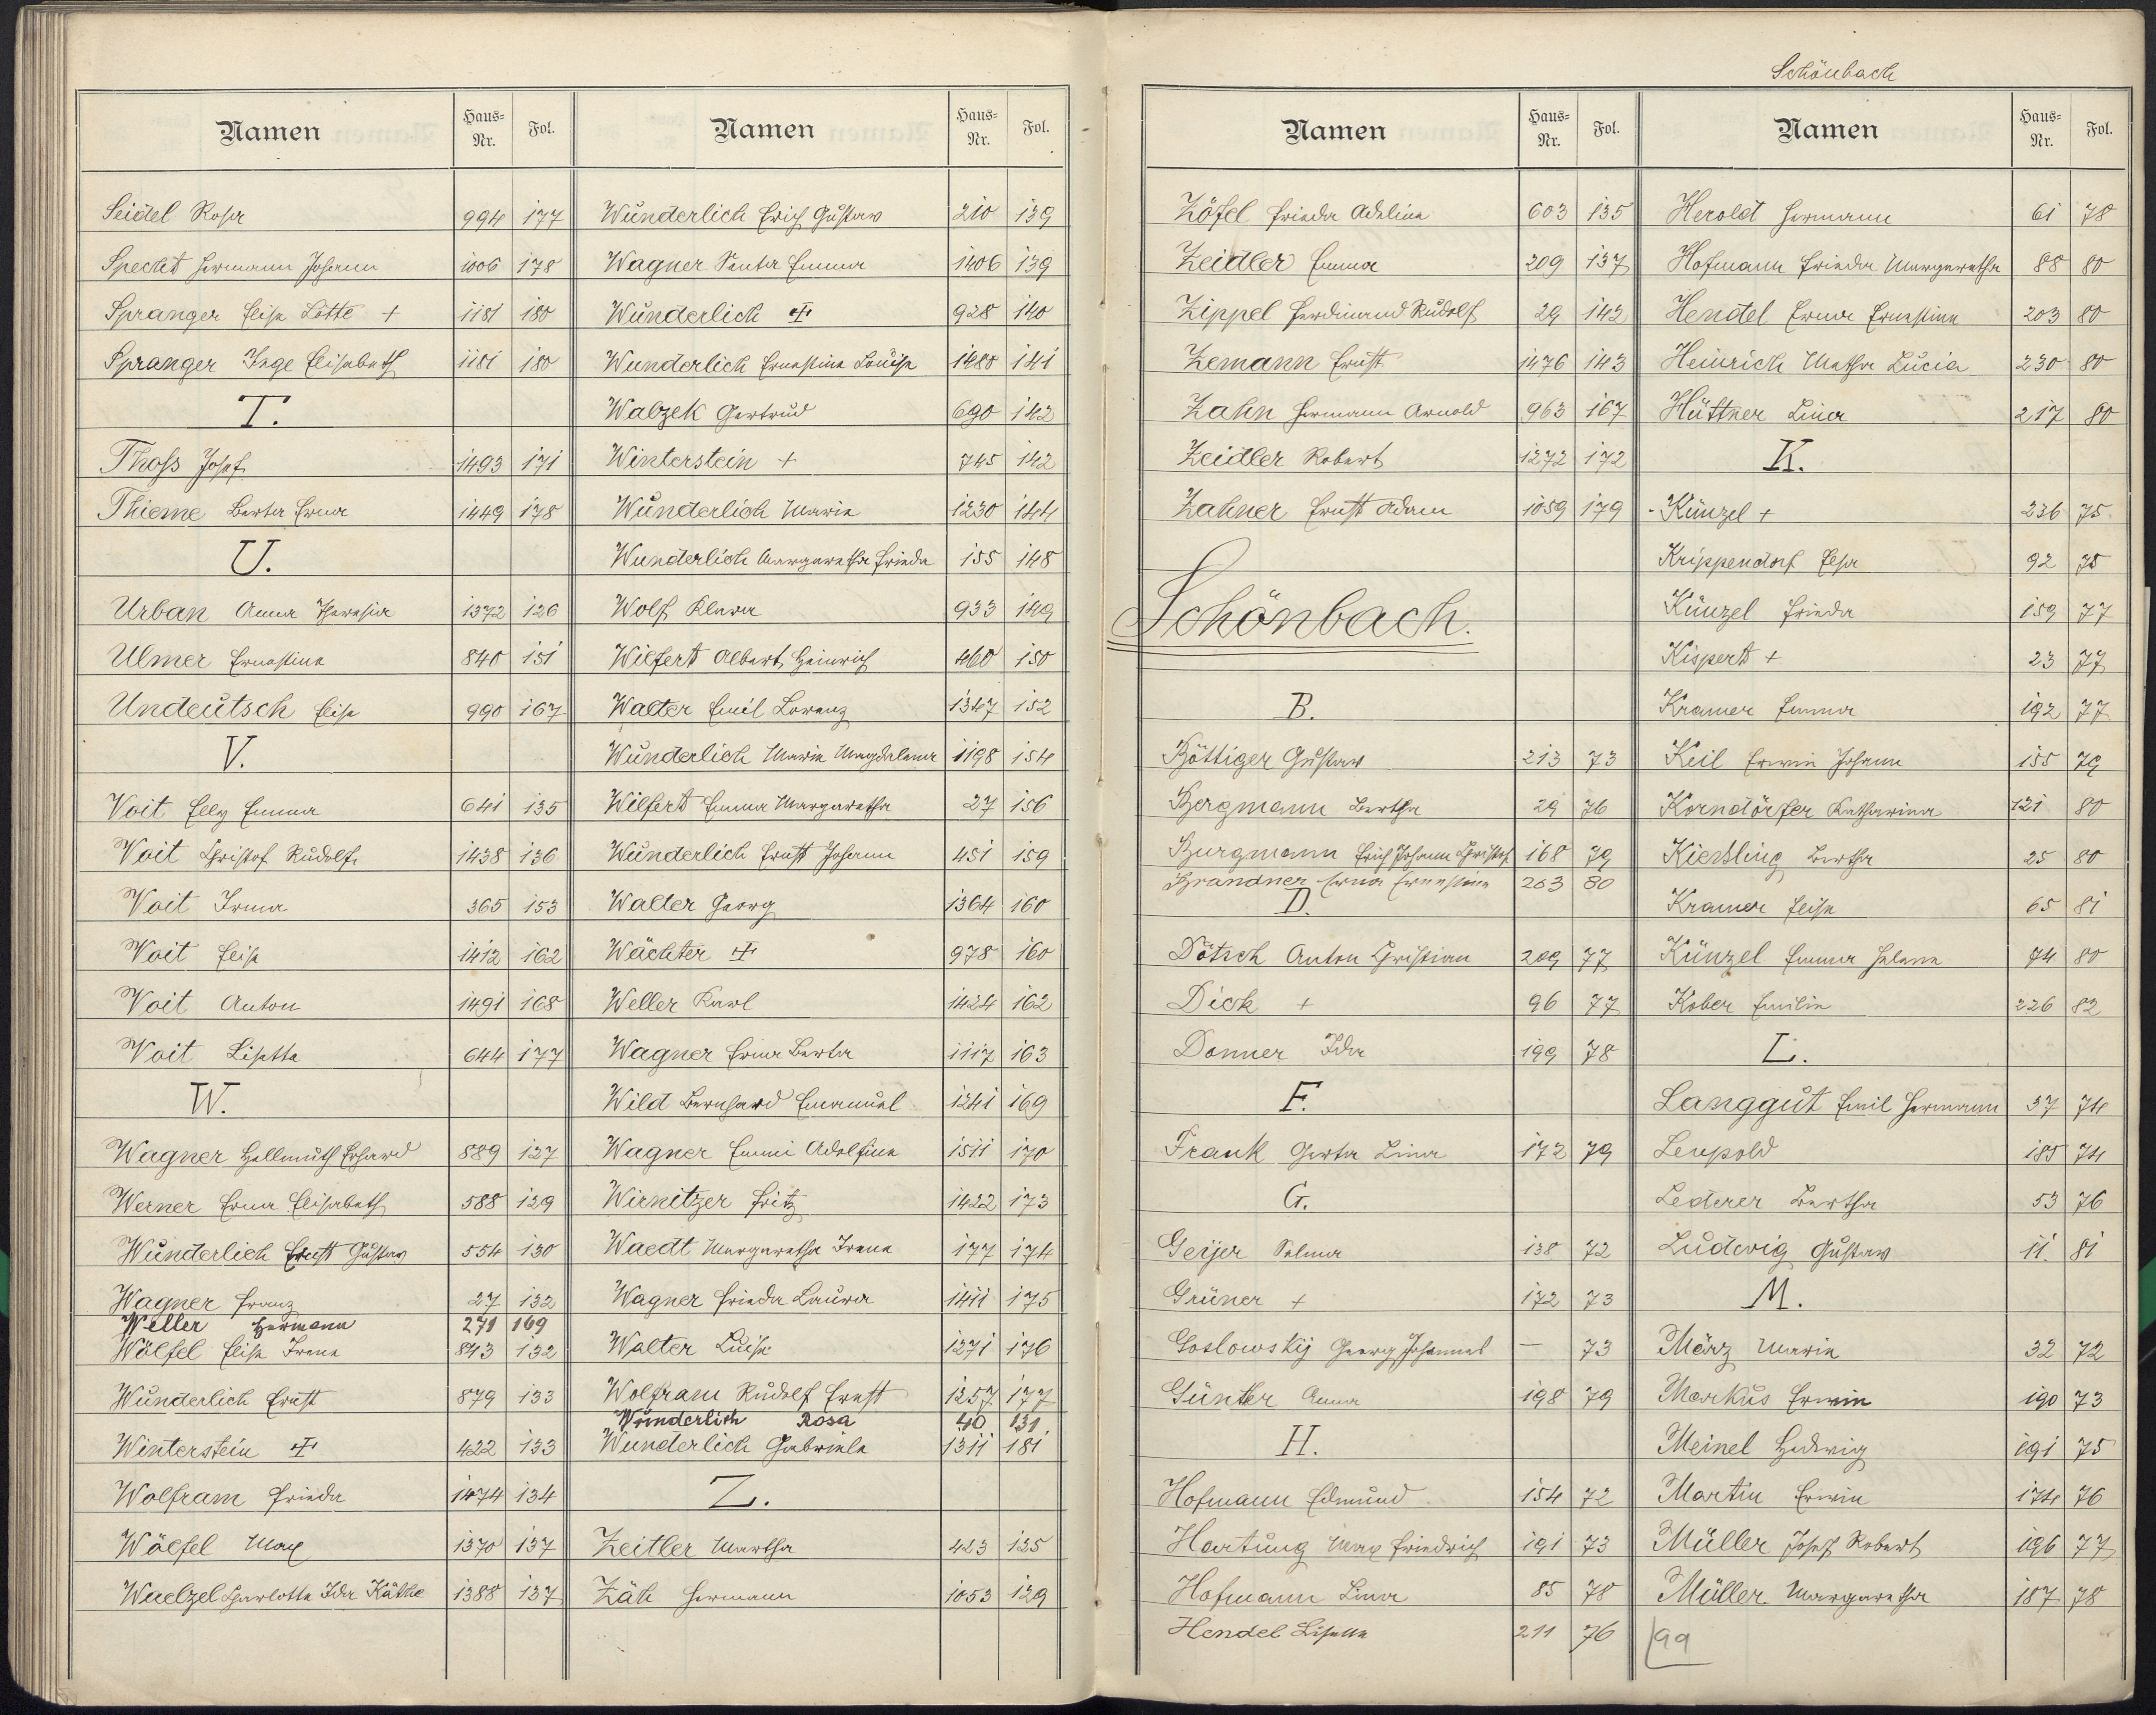 Namen Haus-Nr. Fol.
Seidel Rosa 994 177
Specht Hermann Johann 1006 178
Spranger Elise Lotte + 1181 180
Spranger Inge Elisabeth 1181 180
T.
Thoss Josef 1493 171
Thieme Berta Erna 1449 178
U.
Urban Anna Theresia 1372 126
Ulmer Ernestine 840 151
Undeutsch Elise 990 167
V.
Voit Elly Emma 641 135
Voit Christof Rudolf 1438 136
Voit Irma 365 153
Voit Elise 1412 162
Voit Anton 1491 168
Voit Lisette 644 177
W.
Wagner Hellmuth Erhard 889 127
Werner Erna Elisabeth 588 129
Wunderlich Ernst Gustav 554 130
Wagner Franz 27 132
Weller Hermann 271 169
Wölfel Elise Irene 843 132
Wunderlich Ernst 879 133
Winterstein + 422 133
Wolfram Frieda 1474 134
Wölfel Max 1370 137
Waelzel Charlotte Ida Käthe 1388 137
Namen Haus-Nr. Fol.
Wunderlich Erich Gustav 210 139
Wagner Senta Emma 1406 139
Wunderlich + 928 140
Wunderlich Ernestine Louise 1480 141
Walzek Gertrud 690 142
Winterstein + 745 142
Wunderlich Marie 1230 144
Wunderlich Margaretha Frieda 155 148
Wolf Klara 933 149
Wilfert Albert Heinrich 460 150
Walter Emil Lorenz 1347 152
Wunderlich Marie Magdalena 1198 154
Wilfert Emma Margaretha 27 156
Wunderlich Ernst Johann 451 159
Walter Georg 1364 160
Wächter + 978 160
Weller Karl 1424 162
Wagner Erna Berta 1117 163
Wild Bernhard Emanuel 1241 169
Wagner Emmi Adolfine 1511 170
Wirnitzer Fritz 1422 173
Waedt Margaretha Irene 177 174
Wagner Frieda Laura 1411 175
Walter Luise 1271 176
Wolfram Rudolf Ernst 1257 177
Wunderlich Rosa 40 131
Wunderlich Gabriele 1311 181
Z.
Zeitler Martha 423 125
Zäh Hermann 1053 129
Schönbach
Namen Haus-Nr. Fol.
Zöfel Frieda Adeline 603 135
Zeidler Emma 209 137
Zippel Ferdinand Rudolf 29 142
Zemann Ernst 1476 143
Zahn Hermann Arnold 963 167
Zeidler Robert 1272 172
Zahner Ernst Adam 1059 179
Schönbach.
B.
Böttiger Gustav 213 73
Bergmann Bertha 29 76
Burgmann Erich Johann Christof 168 79
Brandner Erna Ernestine 203 80
D.
Dötsch Anton Christian 209 77
Dick + 96 77
Donner Ida 199 78
F.
Frank Gerta Lina 172 79
G.
Geijer Selma 138 72
Grüner + 172 73
Goslowskij Georg Johannes — 73
Günther Anna 198 79
H.
Hofmann Edmund 154 72
Hartung Max Friedrich 191 73
Hofmann Lina 85 78
Hendel Lisette 211 76
Namen Haus-Nr. Fol.
Herold Hermann 61 78
Hofmann Frieda Margaretha 88 80
Hendel Erna Ernestine 203 80
Heinrich Martha Lucia 230 80
Hüttner Lina 217 80
K.
Künzel + 236 75
Krippendorf Elsa 92 75
Künzel Frieda 159 77
Kispert + 23 77
Kramer Emma 192 77
Keil Erwin Johann 155 79
Korndörfer Katharina 121 80
Kiessling Bertha 25 80
Kramer Elise 65 81
Künzel Emma Helene 74 80
Kober Emilie 226 82
L.
Langgut Emil Hermann 37 74
Leupold 185 74
Lederer Bertha 53 76
Ludwig Gustav 11 81
M.
März Marie 32 72
Markus Erwin 190 73
Meinel Hedwig 191 75
Martin Erwin 174 76
Müller Josef Robert 196 77
Müller Margaretha 187 78
99